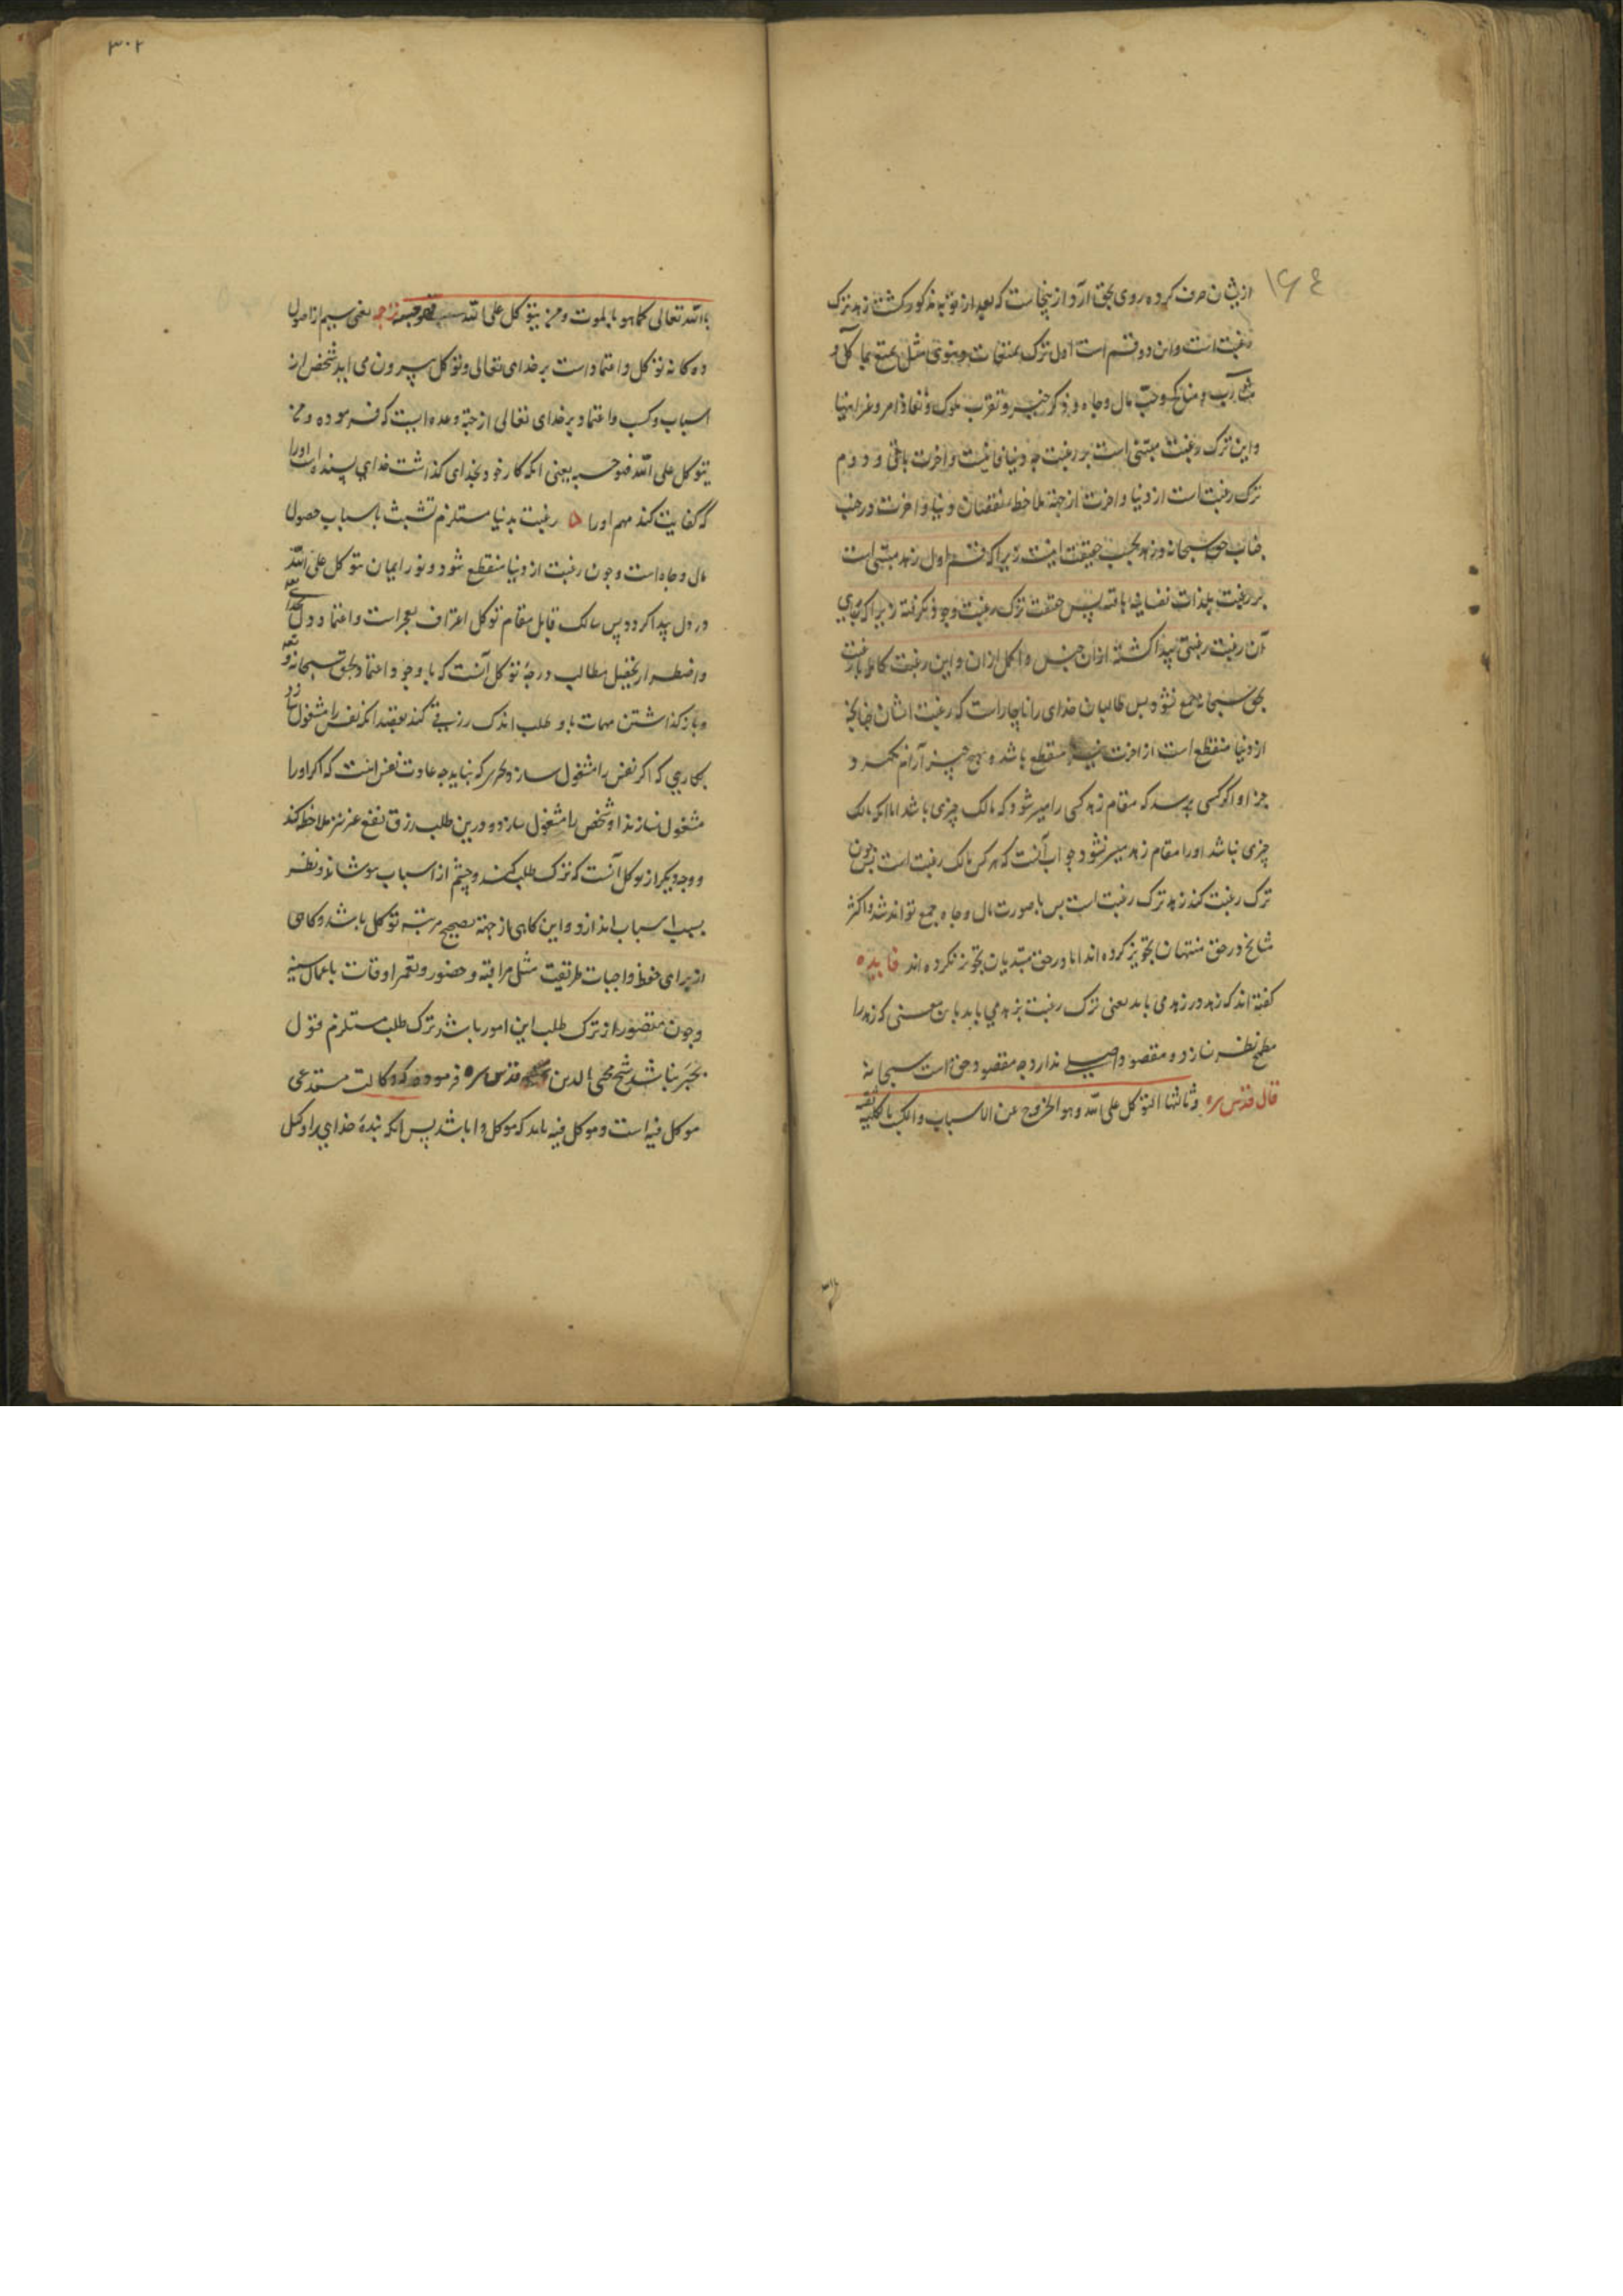 ۱۶۴
از ایشان صرف کرده روی بحق آرد از ینجاست که بعد از توبه مذکور گشت زهد ترک
رغبت است و این دو قسم است اول ترک تمتعات دنیوی مثل تمتع بمآکل و
مشارب و مناکح و حب مال و جاه و ذکر خیر و تقرب ملوک و نفاذ امر و غیرهیا
و این ترک رغبت مبتنی است بر رغبت چه دنیا فانیست و آخرت باقی و دوم
ترک رغبت است از دنیا و آخرت از جهة ملاحظه نقصان دنیا و آخرت در جنب
جناب حق سبحانه و زهد بحسب حقیقت اینست زیرا که قسم اول زهد مبتنی است
بر رغبت بلذات نفسانی باقیه پس حقیقت ترک رغبت وجود نگرفته زیرا که بجای
آن رغبت رغبتی پیدا گشته از آن جنس و اکمل از آن و این رغبت کامل با رغبت
بحق سبحانه جمع نشود پس طالبان خدای را ناچار است که رغبت ایشان چنانچه
از دنیا منقطع است از آخرت نیز منقطع باشد و بهیچ چیز آرام نگیرد و
جز او اگر کسی پرسد که مقام زهد کسی را میسر شود که مالک چیزی باشد اما آنکه مالک
چیزی نباشد او را مقام زهد میسر نشود جواب آنست که هر کس مالک رغبت است پس چون
ترک رغبت کند زهد ترک رغبت است پس با صورت مال و جاه جمع تواند شد و اکثر
مشایخ در حق منتهیان تجویز کرده اند اما در حق مبتدیان تجویز نکرده اند فایده
گفته اند که زهد در زهد می باید یعنی ترک رغبت بزهد می باید باین معنی که زهد را
مطمح نظر نسازد و مقصود اصلی ندارد چه مقصود حق است سبحانه
قال قدس سره وثالثها التوکل علی الله وهو الخروج عن الاسباب والکسب بالکلیه ثقة
۳۰۲
بالله تعالی کما هو بالموت ومن یتوکل علی الله فهو حسبه ترجمه یعنی سیم از اصول
ده کانه توکل و اعتماد است بر خدای تعالی و توکل بیرون می آید شخص از
اسباب و کسب و اعتماد بر خدای تعالی از جهة وعده ایست که فرموده ومن
یتوکل علی الله فهو حسبه یعنی آنکه کار خود بخدای گذاشت خدای پسنده است او را
که کفایت کند مهم او را رغبت بدنیا مستلزم تشبث باسباب حصول
مال و جاه است و چون رغبت از دنیا منقطع شود و نور ایمان بتوکل علی الله
در دل پیدا گردد پس سالک قابل مقام توکل اعتراف بعجز است و اعتماد دل
و اضطرار بتحصیل مطالب درجۀ توکل آنست که با وجود اعتماد بحق سبحانه و
و باز گذاشتن مهمات باو طلب اندک رزقی کند بقصد آنکه نفس را مشغول
بکاری که اگر نفس را مشغول سازد بهر که نباید چه عادت نفس اینست که اگر او را
مشغول نسازند او شخص را مشغول سازد و درین طلب رزق نفع غیر نیز ملاحظه کند
و وجه دیگر از توکل آنست که ترک طلب کند و چشم از اسباب بپوشاند و نظر
بمسبب اسباب اندازد و این گاهی از جهة تصحیح مرتبه توکل باشد و گاهی
از برای حفظ واجبات طریقت مثل مراقبه و حضور و تعمیر اوقات باعمال سنیه
و چون مقصود از ترک طلب این امور باشد ترک طلب مستلزم قول
بجبر نباشد شیخ محیی الدین قدس سره فرموده که وکالت مستدعی
موکل فیه است و موکل فیه باید که موکل را باشد پس آنکه بندۀ خدای را وکیل